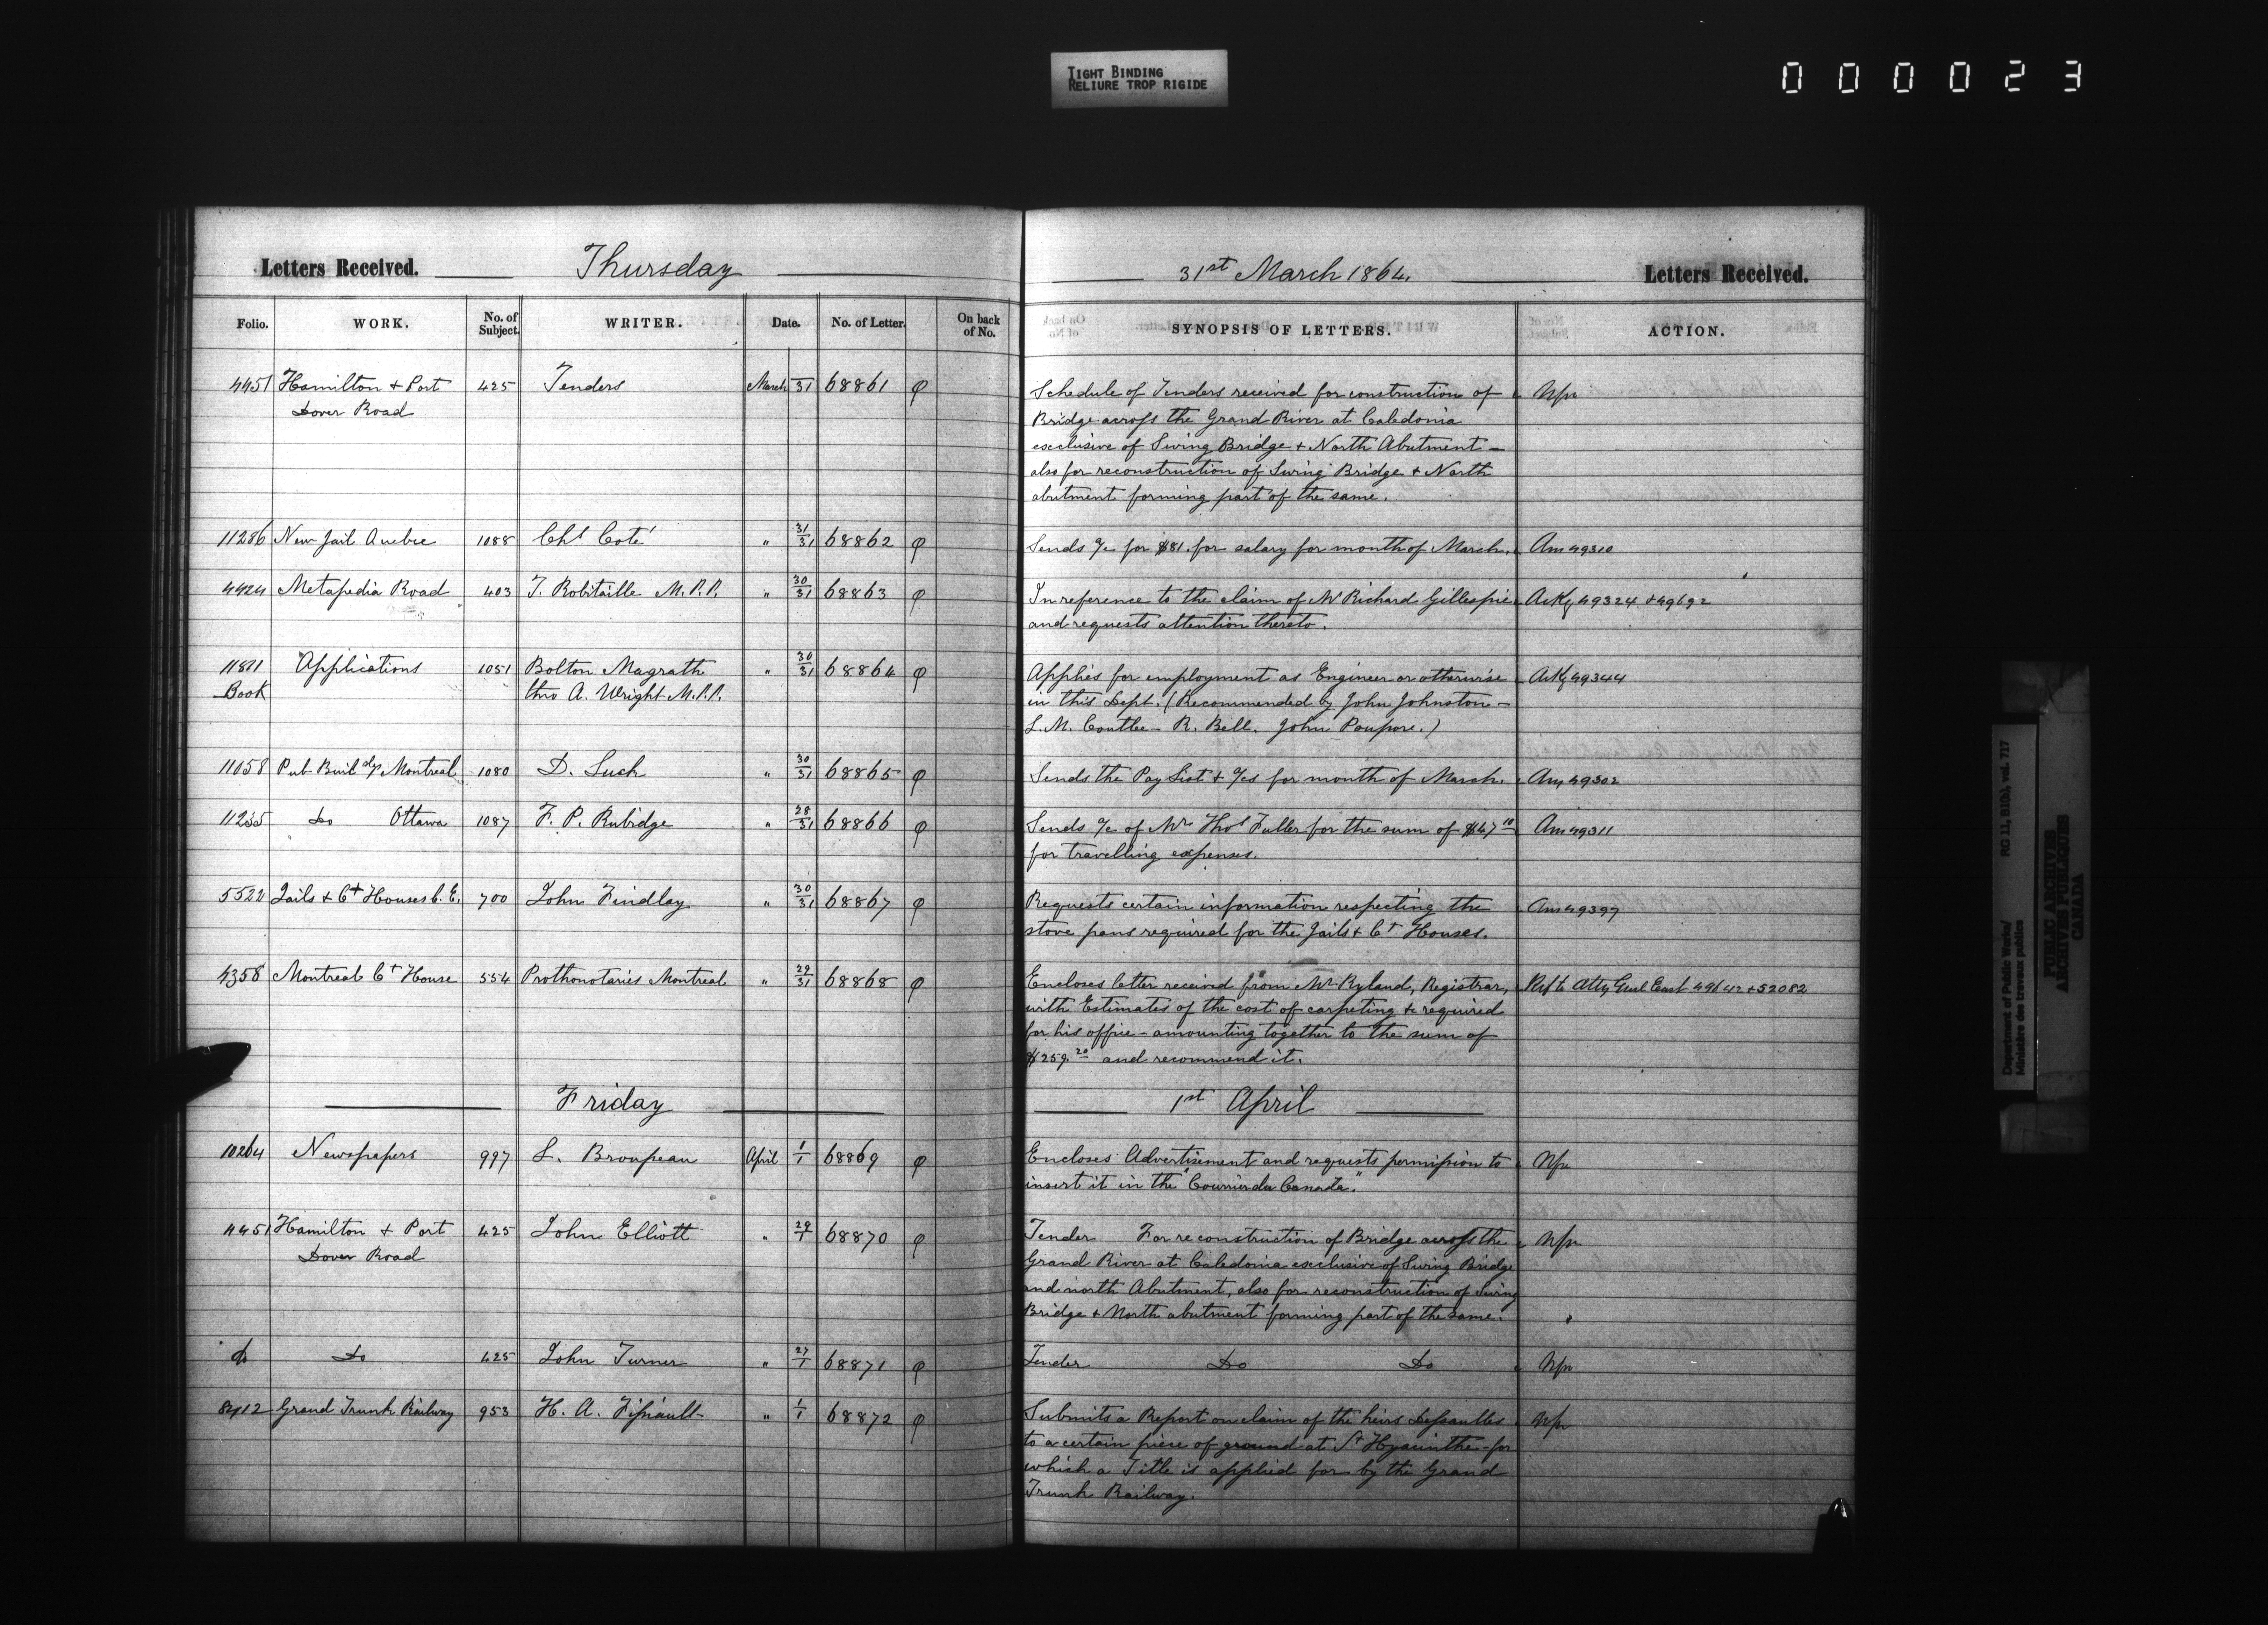 TIGHT BINDING
RELIURE TROP RIGIDE
000023
Letters Received. Thursday
Folio. WORK. No. of Subject. WRITER. Date. No. of Letter. On back of No.
4451 Hamilton & Port 425 Tenders March 31 68861 φ
Dover Road
11286 New Jail Quebec 1088 Chs Coté " 31/31 68862 φ
4424 Metapedia Road 403 T. Robitaille M.P.P. " 30/31 68863 φ
11811 Applications 1051 Bolton Magrath " 30/31 68864 φ
Book thro A. Wright M.P.P.
11058 Pub Buildgs Montreal 1080 D. Luck " 30/31 68865 φ
11235 Do Ottawa 1087 F. P. Rubidge " 28/31 68866 φ
5522 Jails & Ct Houses C.E. 700 John Findlay " 30/31 68867 φ
4358 Montreal Ct House 554 Prothonotaries Montreal " 29/31 68868 φ
Friday
10264 Newspapers 997 L. Brousseau April 1/1 68869 φ
4451 Hamilton & Port 425 John Elliott " 29/1 68870 φ
Dover Road
do Do 425 John Turner " 27/1 68871 φ
8412 Grand Trunk Railway 953 H. A. Fissiault " 1/1 68872 φ
31st March 1864. Letters Received.
SYNOPSIS OF LETTERS. ACTION.
Schedule of Tenders received for construction of Nfr
Bridge across the Grand River at Caledonia
exclusive of Swing Bridge & North Abutment –
also for reconstruction of Swing Bridge & North
abutment forming part of the same.
Sends a/c for $81. for salary for month of March. Am 49310
In reference to the claim of Mr Richard Gillespie Ackg 49324 & 49692
and requests attention thereto.
Applies for employment as Engineer or otherwise Ackg 49344
in this Dept. (Recommended by John Johnston –
L. M. Coutlee – R. Bell. John Poupore.)
Sends the Pay List & a/cs for month of March. Am 49302
Sends a/c of Mr Thos Fuller for the sum of $47 10 Am 49311
for travelling expenses.
Requests certain information respecting the Am 49397
stove pans required for the Jails & Ct Houses.
Encloses letter received from Mr Ryland, Registrar, Ref to Atty Genl East 49642 & 52082
with Estimates of the cost of carpeting &c required
for his office – amounting together to the sum of
$259.20 and recommend it.
1st April
Encloses Advertisement and requests permission to Nfr
insert it in the "Courrier du Canada".
Tender For reconstruction of Bridge across the Nfr
Grand River at Caledonia exclusive of Swing Bridge
and north Abutment, also for reconstruction of Swing
Bridge & North abutment forming part of the same.
Tender Do Do Nfr
Submits a Report on claim of the heirs Dessaulles Nfr
to a certain piece of ground at St Hyacinthe – for
which a Title is applied for by the Grand
Trunk Railway.
Department of Public Works/ RG 11, B1(b), vol. 717
Ministère des travaux publics
PUBLIC ARCHIVES
ARCHIVES PUBLIQUES
CANADA